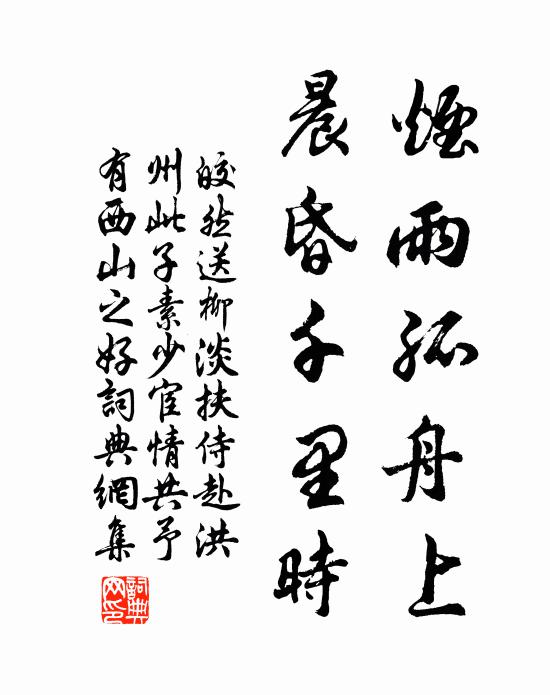 煙雨孤舟上
晨昏千里時
皎然送柳淡扶侍赴洪
州此子素少宦情共予
有西山之好詞典網集
詞典網印